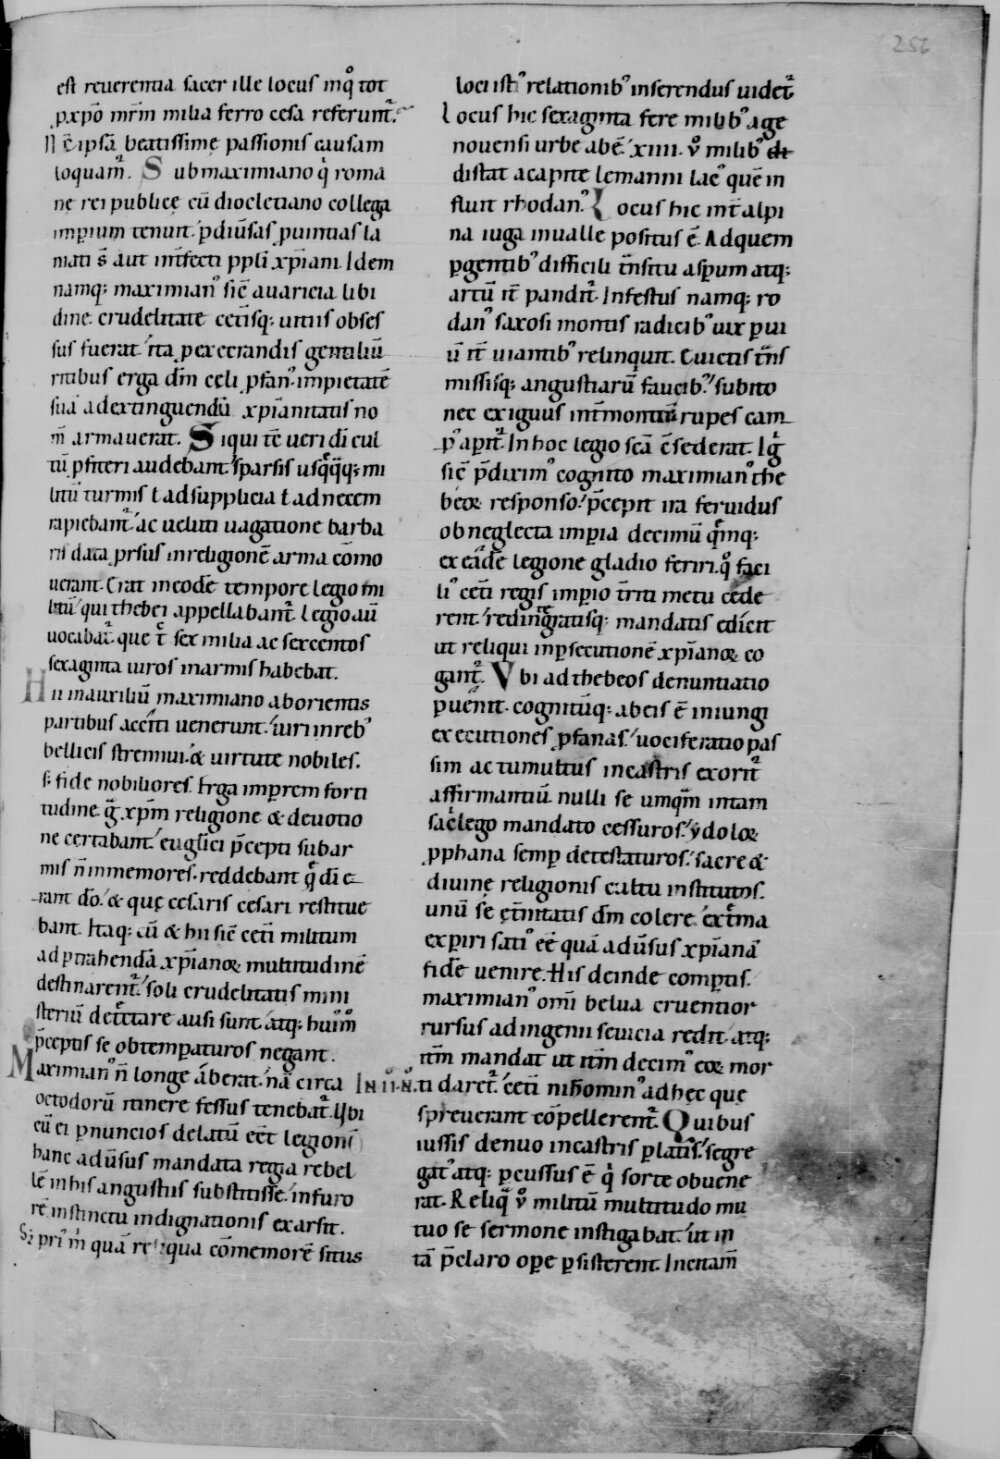 256
est reuerentia sacer ille locus inq̊ tot
p xp̄o mr̄m milia ferro cesa referunt᷑.
N c̄ ipsā beatissimę passionis causam
loquam᷑. Sub maximiano q̇ roma
ne rei publicę cū diocletiano collega
imꝑium tenuit. ꝑ diūsas ꝓuintias la
niati s̄ aut int̄fecti ppl̓i xp̄iani. Idem
namq; maximian᷒ sic̄ auaricia libi
dine. crudelitate cet̄isq; uitiis obses
sus fuerat. ita ꝑ execrandis gentiliū
ritibus erga dm̄ celi ꝓfan᷒. impietatē
suā ad extinguendū xp̄ianitatis no
m̄ armauerat. Si qui tc̄ ueri di cul
tū ꝓfiteri audebant. sparsis usq̨q̨q; mi
litū turmis ł ad supplicia ł ad necem
rapiebant᷑. ac ueluti uagatione barba
ris data prsus in religionē arma cōmo
uerant. Erat in eodē tempore legio mi
litū. qui thebei appellabant᷑. Legio aū
uocabat᷑. que t̄c sex milia ac sexcentos
sexaginta uiros in armis habebat.
Hii in auxiliū maximiano ab orientis
partibus acciti uenerunt. uiri in reb᷒
bellicis strennui. & uirtute nobiles.
s; fide nobiliores. Erga imꝑrem forti
tudine. g̊ xp̄m religione & deuotio
ne certabant. euglici p̄cepti sub ar
mis n̄ inmemores. reddebant q̨ di e
rant dō. & quę cesaris cesari restitue
bant. Itaq; cū & hii sic̄ cet̄i militum
ad ꝑtrahendā xp̄ianoꝝ multitudinē
destinarent᷑. soli crudelitatis mini
steriū detrectare ausi sunt. atq; hui᷒m̊
p̄ceptis se obtempaturos negant.
Maximian᷒ n̄ longe ab̄erat. nā circa
octodorū itinere fessus tenebat᷑. Ubi
cū ei ꝑ nuncios delatū eēt legionē
hanc adūsus mandata regia rebel
lē in his angustiis substitisse. in furo
rē instinctu indignationis exarsit.
S; pri᷒ m̊ quā reliqua cōmemorē situs
loci ist᷒ relationib᷒ inserendus uidet᷑
Locus hic sexaginta fere milib᷒ a ge
nouensi urbe abē. xiiii. v̊ milib᷒ di
distat a capite lemanni lac᷒ quē in
fluit rhodan᷒. Locus hic int̄ alpi
na iuga in ualle positus ē. Ad quem
ꝑgentib᷒ difficili t̄nsitu aspum atq;
artū it̄ pandit᷑. Infestus namq; ro
dan᷒ saxosi montis radicib᷒ uix ꝑui
ū it̄ uiantib᷒ relinquit. Euictis t̄ns
missisq; angustiarū faucib᷒. subito
nec exiguus int̄ montiū rupes cam
p᷒ aꝑit᷑. In hoc legio scā c̄sederat. Ig̊
sic̄ p̄dixim᷒ cognito maximian᷒ the
beoꝝ responso. p̄cepit ira feruidus
ob neglecta imꝑia decimū quēmq;
ex eādē legione gladio feriri. q̊ faci
li᷒ cet̄i regis imꝑio t̄riti metu cede
rent. redintegratisq; mandatis edicit
ut reliqui in ꝑsecutionē xp̄ianoꝝ co
gant᷑. Vbi ad thebeos denuntiatio
ꝑuenit. cognitūq; ab eis ē iniungi
executiones ꝓfanas. uociferatio pas
sim ac tumultus in castris exorit᷑
affirmantiū nulli se umq̄m in tam
sac̊lego mandato cessuros. ydoloꝝ
ꝓphana semꝑ detestaturos. sacre &
diuinę religionis cultu institutos.
unū se et̄nitatis dm̄ colere. ext̄ma
exꝑiri sati᷒ eē quā adūsus xp̄ianā
fidē uenire. His deinde comꝑtis.
maximian᷒ omī belua cruentior
rursus ad ingenii seuicia redit. atq;
itm̄ mandat ut itm̄ decim᷒ eoꝝ mor
ti daret᷑. cet̄i nihomin᷒ ad hec que
spreuerant cōpellerent᷑. Quibus
iussis denuo in castris ꝑlatis. segre
gat᷒ atq; ꝑcussus ē q̇ sorte obuene
rat. Reliq̨ v̊ militū multitudo mu
tuo se sermone instigabat. ut in
tā p̄claro oꝑe ꝑsisterent. Incitam̄